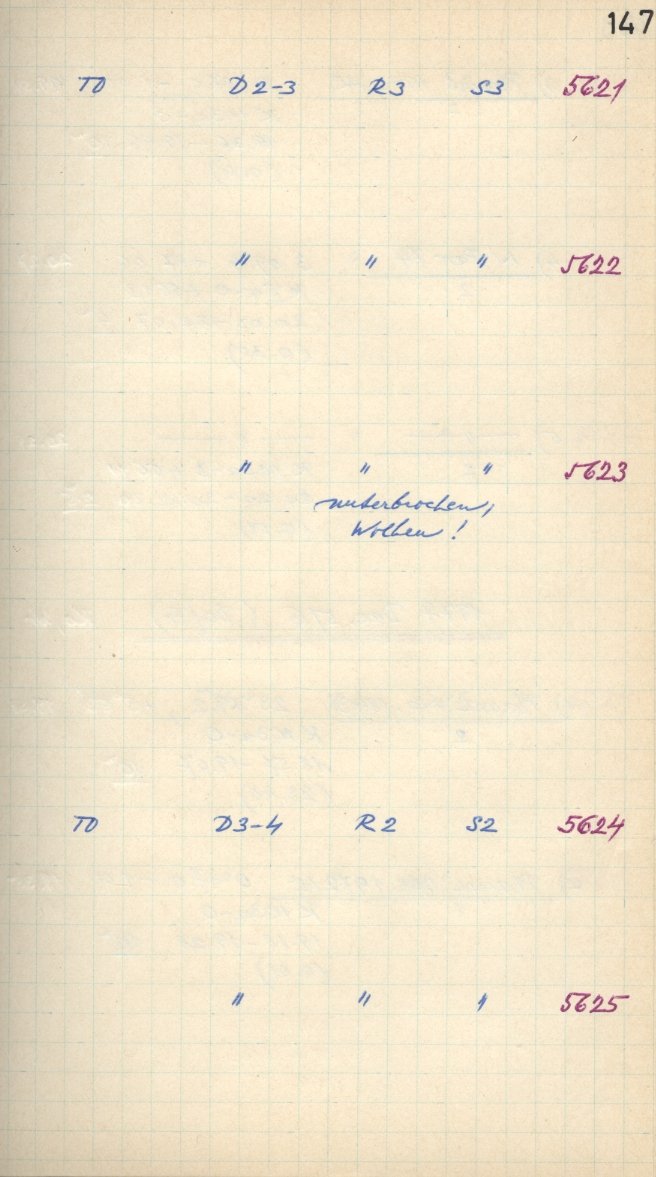 147
TD D2-3 R3 S3 5621
" " " 5622
" " " 5623
unterbrochen,
Wolken!
TD D3-4 R2 S2 5624
" " " 5625